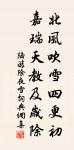 北風吹雪四更初
嘉瑞天教及歲除
陸游除夜雪詞典網集